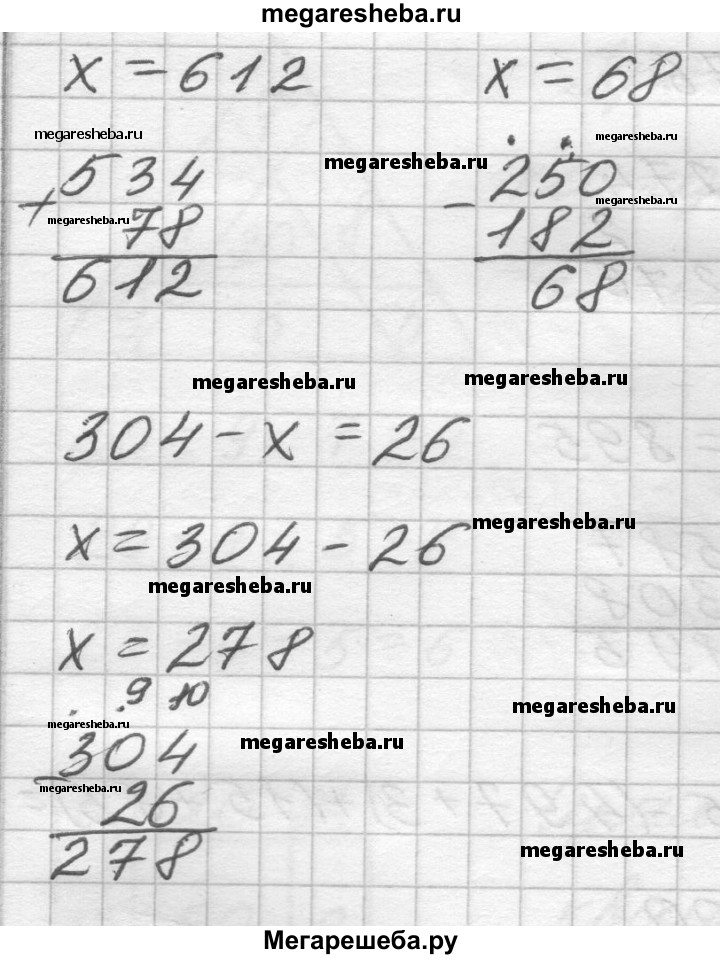 megaresheba.ru
x = 612 x = 68
megaresheba.ru megaresheba.ru megaresheba.ru
534 - 250
+ megaresheba.ru 78 182 megaresheba.ru
612 68
megaresheba.ru megaresheba.ru
304 - x = 26
x = 304 - 26 megaresheba.ru
megaresheba.ru
x = 278
9 10 megaresheba.ru
megaresheba.ru
- 304 megaresheba.ru
megaresheba.ru 26
278 megaresheba.ru
Мегарешеба.ру